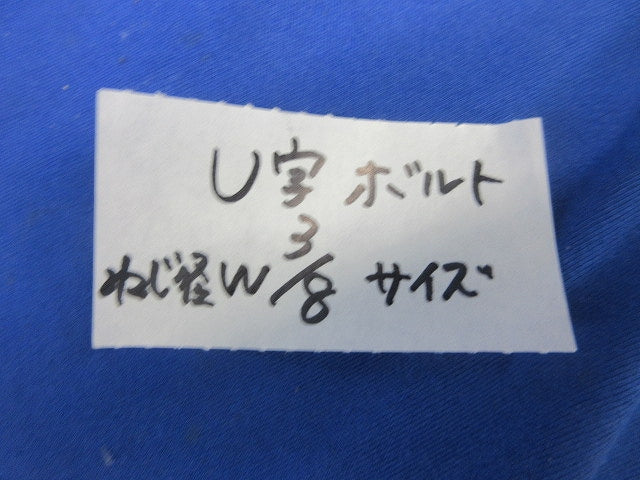 U字ボルト
ねじ径W3/8 サイズ